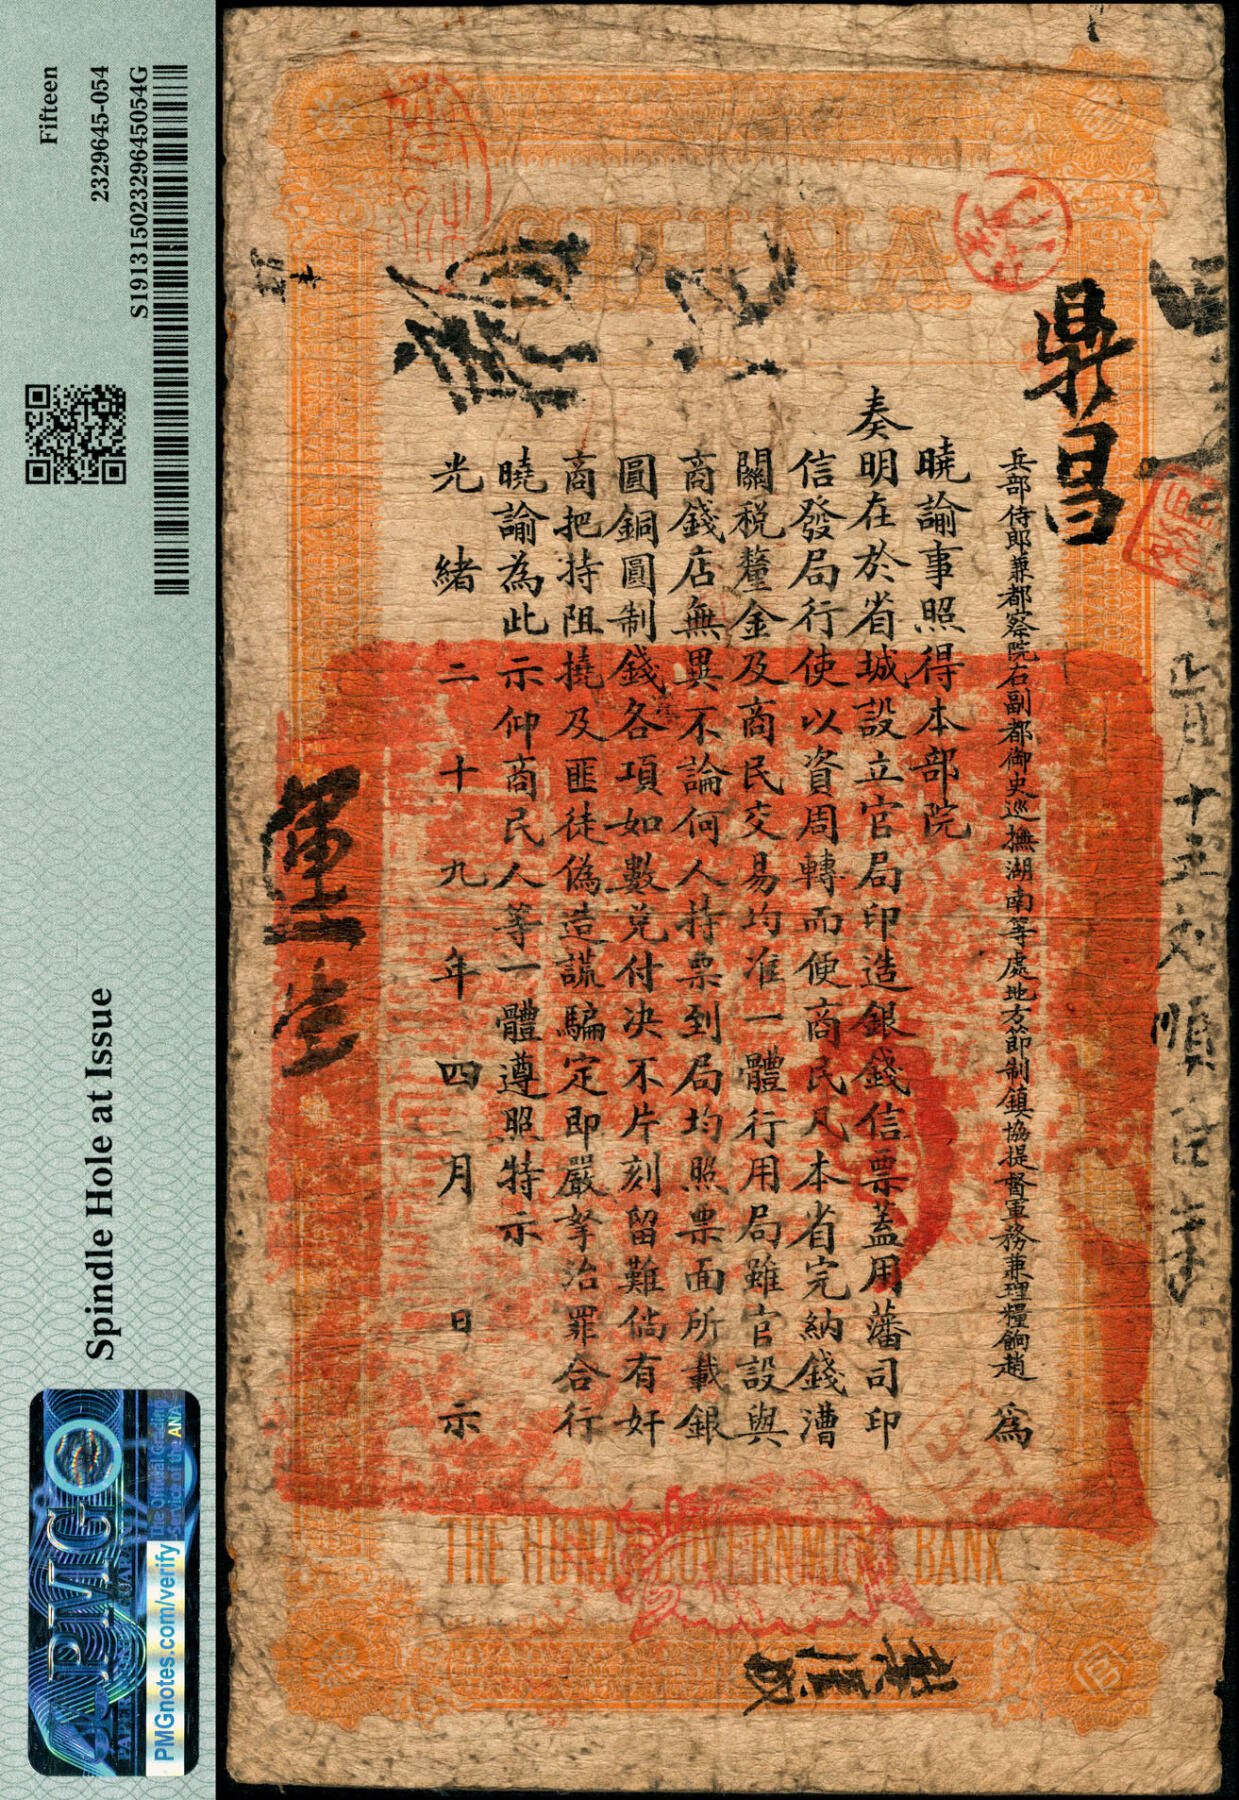 Fifteen
2329645-054
S19131502329645054G
Spindle Hole at Issue
PMG
The Official Grading Service of the ANA
PMGnotes.com/verify
CHINA
鼎昌
兵部侍郎兼都察院右副都御史巡撫湖南等處地方節制鎮協提督軍務兼理糧餉趙 為
曉諭事照得本部院
奏明在於省城設立官局印造銀錢信票蓋用藩司印
信發局行使以資周轉而便商民凡本省完納錢漕
關稅釐金及商民交易均准一體行用局雖官設與
商錢店無異不論何人持票到局均照票面所載銀
圓銅圓制錢各項如數兌付決不片刻留難倘有奸
商把持阻撓及匪徒偽造謊騙定即嚴拏治罪合行
曉諭為此示仰商民人等一體遵照特示
光緒二十九年四月 日示
THE HUNAN GOVERNMENT BANK